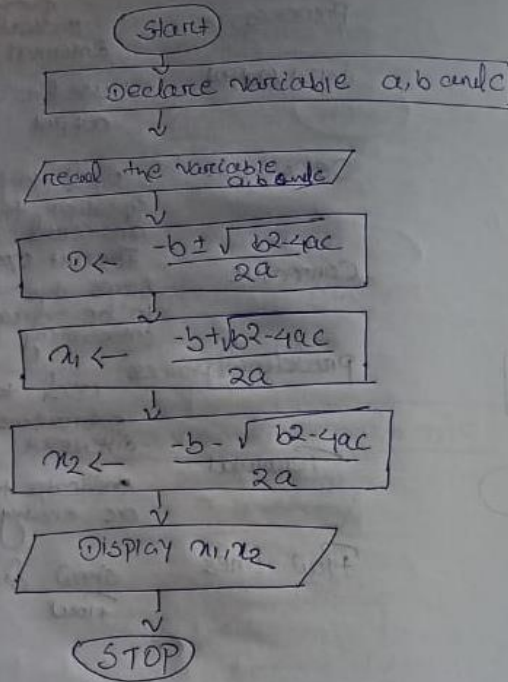 Start
Declare variable a, b and c
read the variable
a, b and c
D ← -b ± √b2-4ac
2a
x1 ← -b+√b2-4ac
2a
x2 ← -b - √b2-4ac
2a
Display x1, x2
STOP